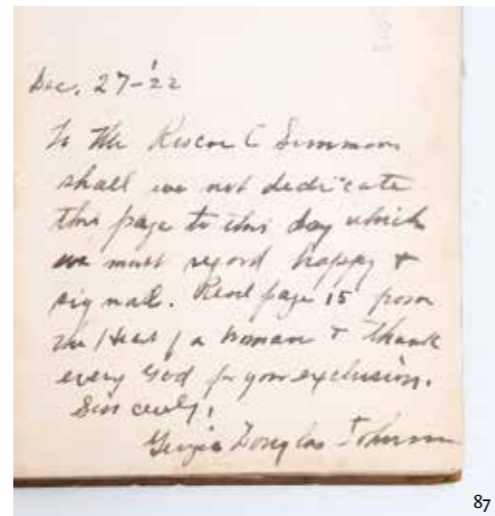 Dec. 27-'22
To Mr Roscoe C Simmons
shall we not dedicate
this page to this day which
we must regard happy &
signal. Read page 15 from
The Heart of a Woman & thank
every God for your exclusion.
Sincerely,
Georgia Douglas Johnson
87